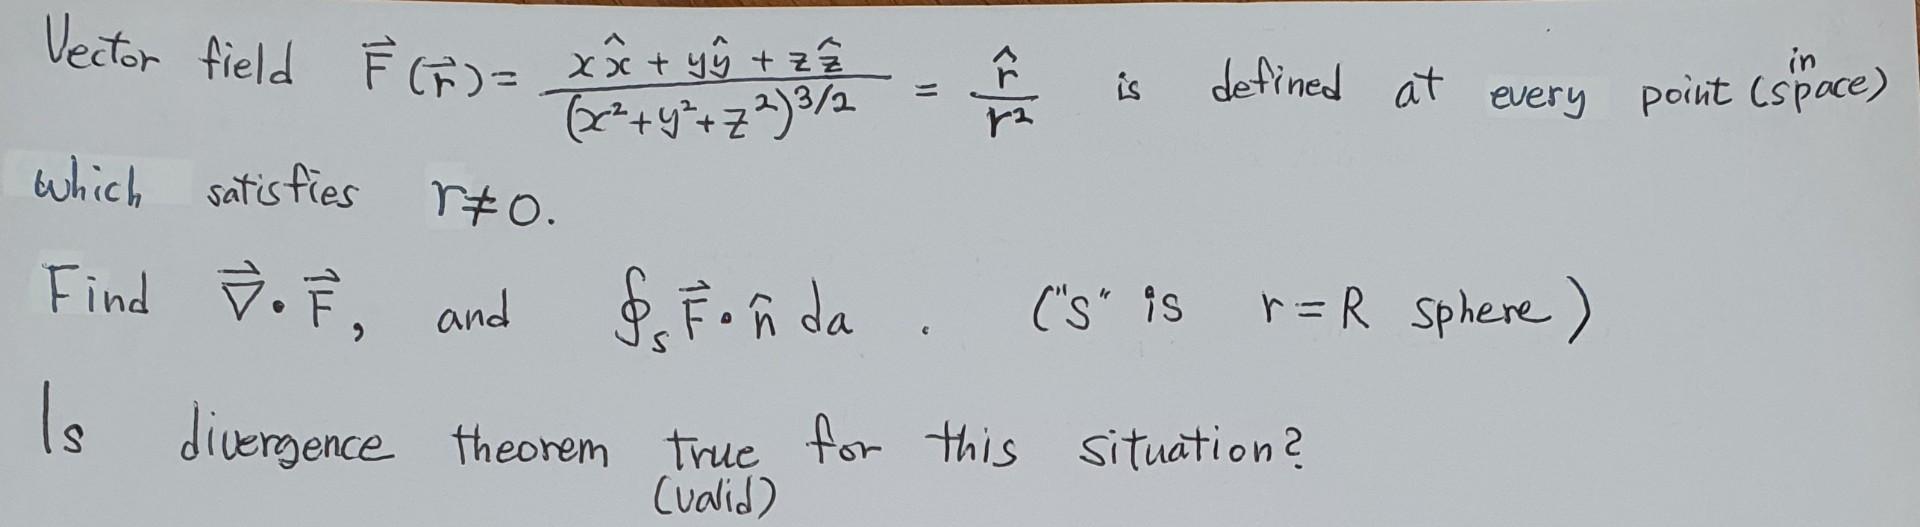 Vector field F⃗(r⃗) = (x x̂ + y ŷ + z ẑ) / (x² + y² + z²)^3/2 = r̂ / r² is defined at every point (in space)
which satisfies r≠0.
Find ∇⃗·F⃗, and ∮_S F⃗·n̂ da. ("S" is r=R sphere)
Is divergence theorem true for this situation?
(valid)